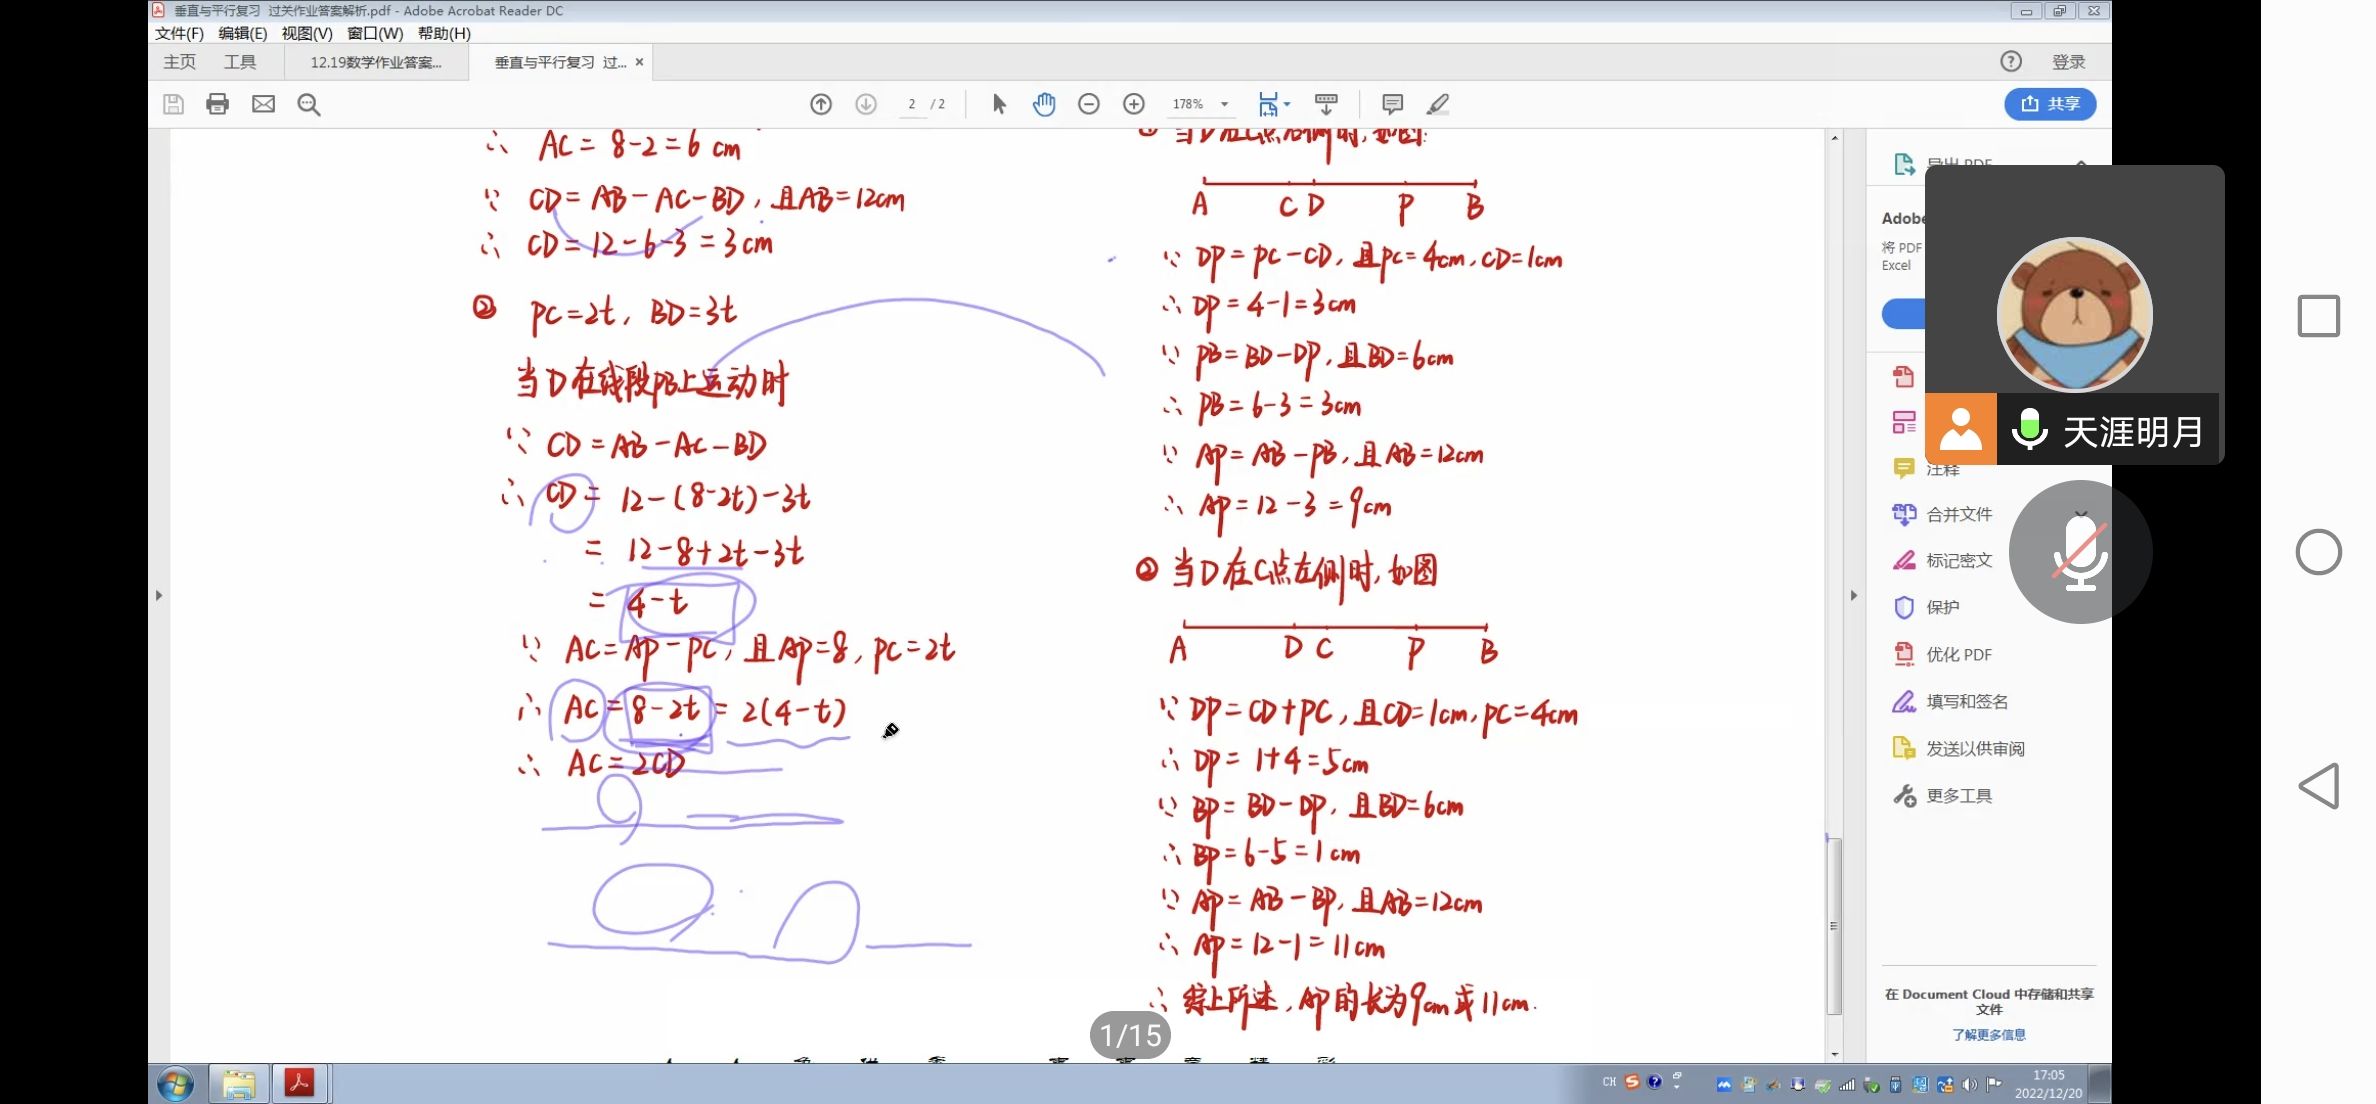 垂直与平行复习 过关作业答案解析.pdf - Adobe Acrobat Reader DC
文件(F) 编辑(E) 视图(V) 窗口(W) 帮助(H)
主页 工具 12.19数学作业答案... 垂直与平行复习 过... ×
登录
2 / 2 178% 共享
∴ AC = 8-2 = 6 cm
∵ CD = AB - AC - BD, 且AB = 12cm
∴ CD = 12 - 6 - 3 = 3 cm
② PC = 2t, BD = 3t
当D在线段PB上运动时
∵ CD = AB - AC - BD
∴ CD = 12 - (8-2t) - 3t
= 12 - 8 + 2t - 3t
= 4 - t
∵ AC = AP - PC, 且AP = 8, PC = 2t
∴ AC = 8 - 2t = 2(4-t)
∴ AC = 2CD
① 当D在C点右侧时, 如图:
A C D P B
∵ DP = PC - CD, 且PC = 4cm, CD = 1cm
∴ DP = 4 - 1 = 3cm
∵ PB = BD - DP, 且BD = 6cm
∴ PB = 6 - 3 = 3cm
∵ AP = AB - PB, 且AB = 12cm
∴ AP = 12 - 3 = 9cm
② 当D在C点左侧时, 如图
A D C P B
∵ DP = CD + PC, 且CD = 1cm, PC = 4cm
∴ DP = 1 + 4 = 5cm
∵ BP = BD - DP, 且BD = 6cm
∴ BP = 6 - 5 = 1cm
∵ AP = AB - BP, 且AB = 12cm
∴ AP = 12 - 1 = 11cm
∴ 综上所述, AP的长为9cm或11cm.
1/15
导出 PDF
Adobe
将 PDF
Excel
天涯明月
注释
合并文件
标记密文
保护
优化 PDF
填写和签名
发送以供审阅
更多工具
在 Document Cloud 中存储和共享
文件
了解更多信息
CH
17:05
2022/12/20